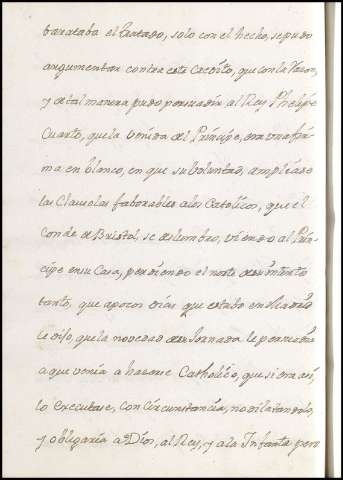 barataba el tratado, solo con el hecho, sepudo
argumentar contra este Credito, que con la Razon,
y detal manera pudo persuadir al Rey Phelipe
Cuarto, que la venida del Principe, era vna fir-
ma en blanco, en que su Voluntad, amplease
las Clausulas faborables alos Catolicos, que el
Conde de Bristol, se deslumbro, viendo al Prin-
cipe en su Casa, perdiendo el norte desu intento
tanto, que apocos dias que estaba en Madrid
le dijo, que la novedad desu Jornada le persuadia
a que venia a hacerse Catholico, que si era asi,
lo executase, con Circunstancia, no dilatandolo,
y obligaria a Dios, al Rey, y ala Infanta pero